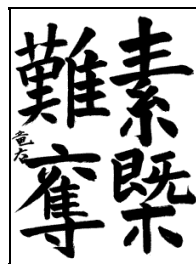 素槩
難奪